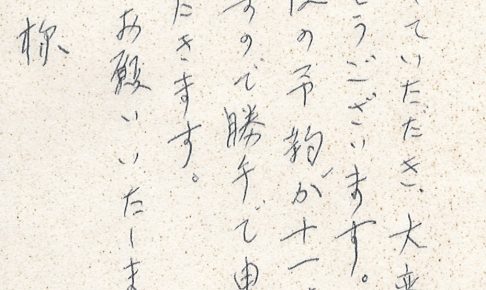 ていただき、大変
うございます。
の予約が十一
すので勝手で申
たきます。
お願いいたしま
様